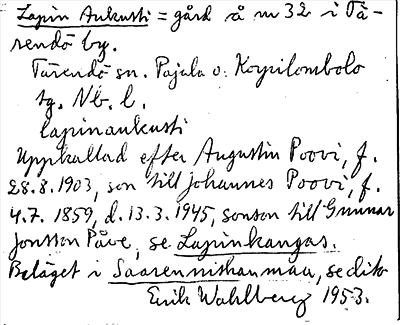 Lapin Aukusti = gård å nr 32 i Tä-
rendö by.
Tärendö sn. Pajala o. Korpilombolo
tg. Nb. l.
lapinaukusti
Uppkallad efter Augustin Poovi, f.
28.8.1903, son till Johannes Poovi, f.
4.7. 1859, d. 13.3.1945, sonson till Gunnar
Jonsson Påve, se Lapinkangas.
Beläget i Saarenniskanmaa, se dito
Erik Wahlberg 1953.